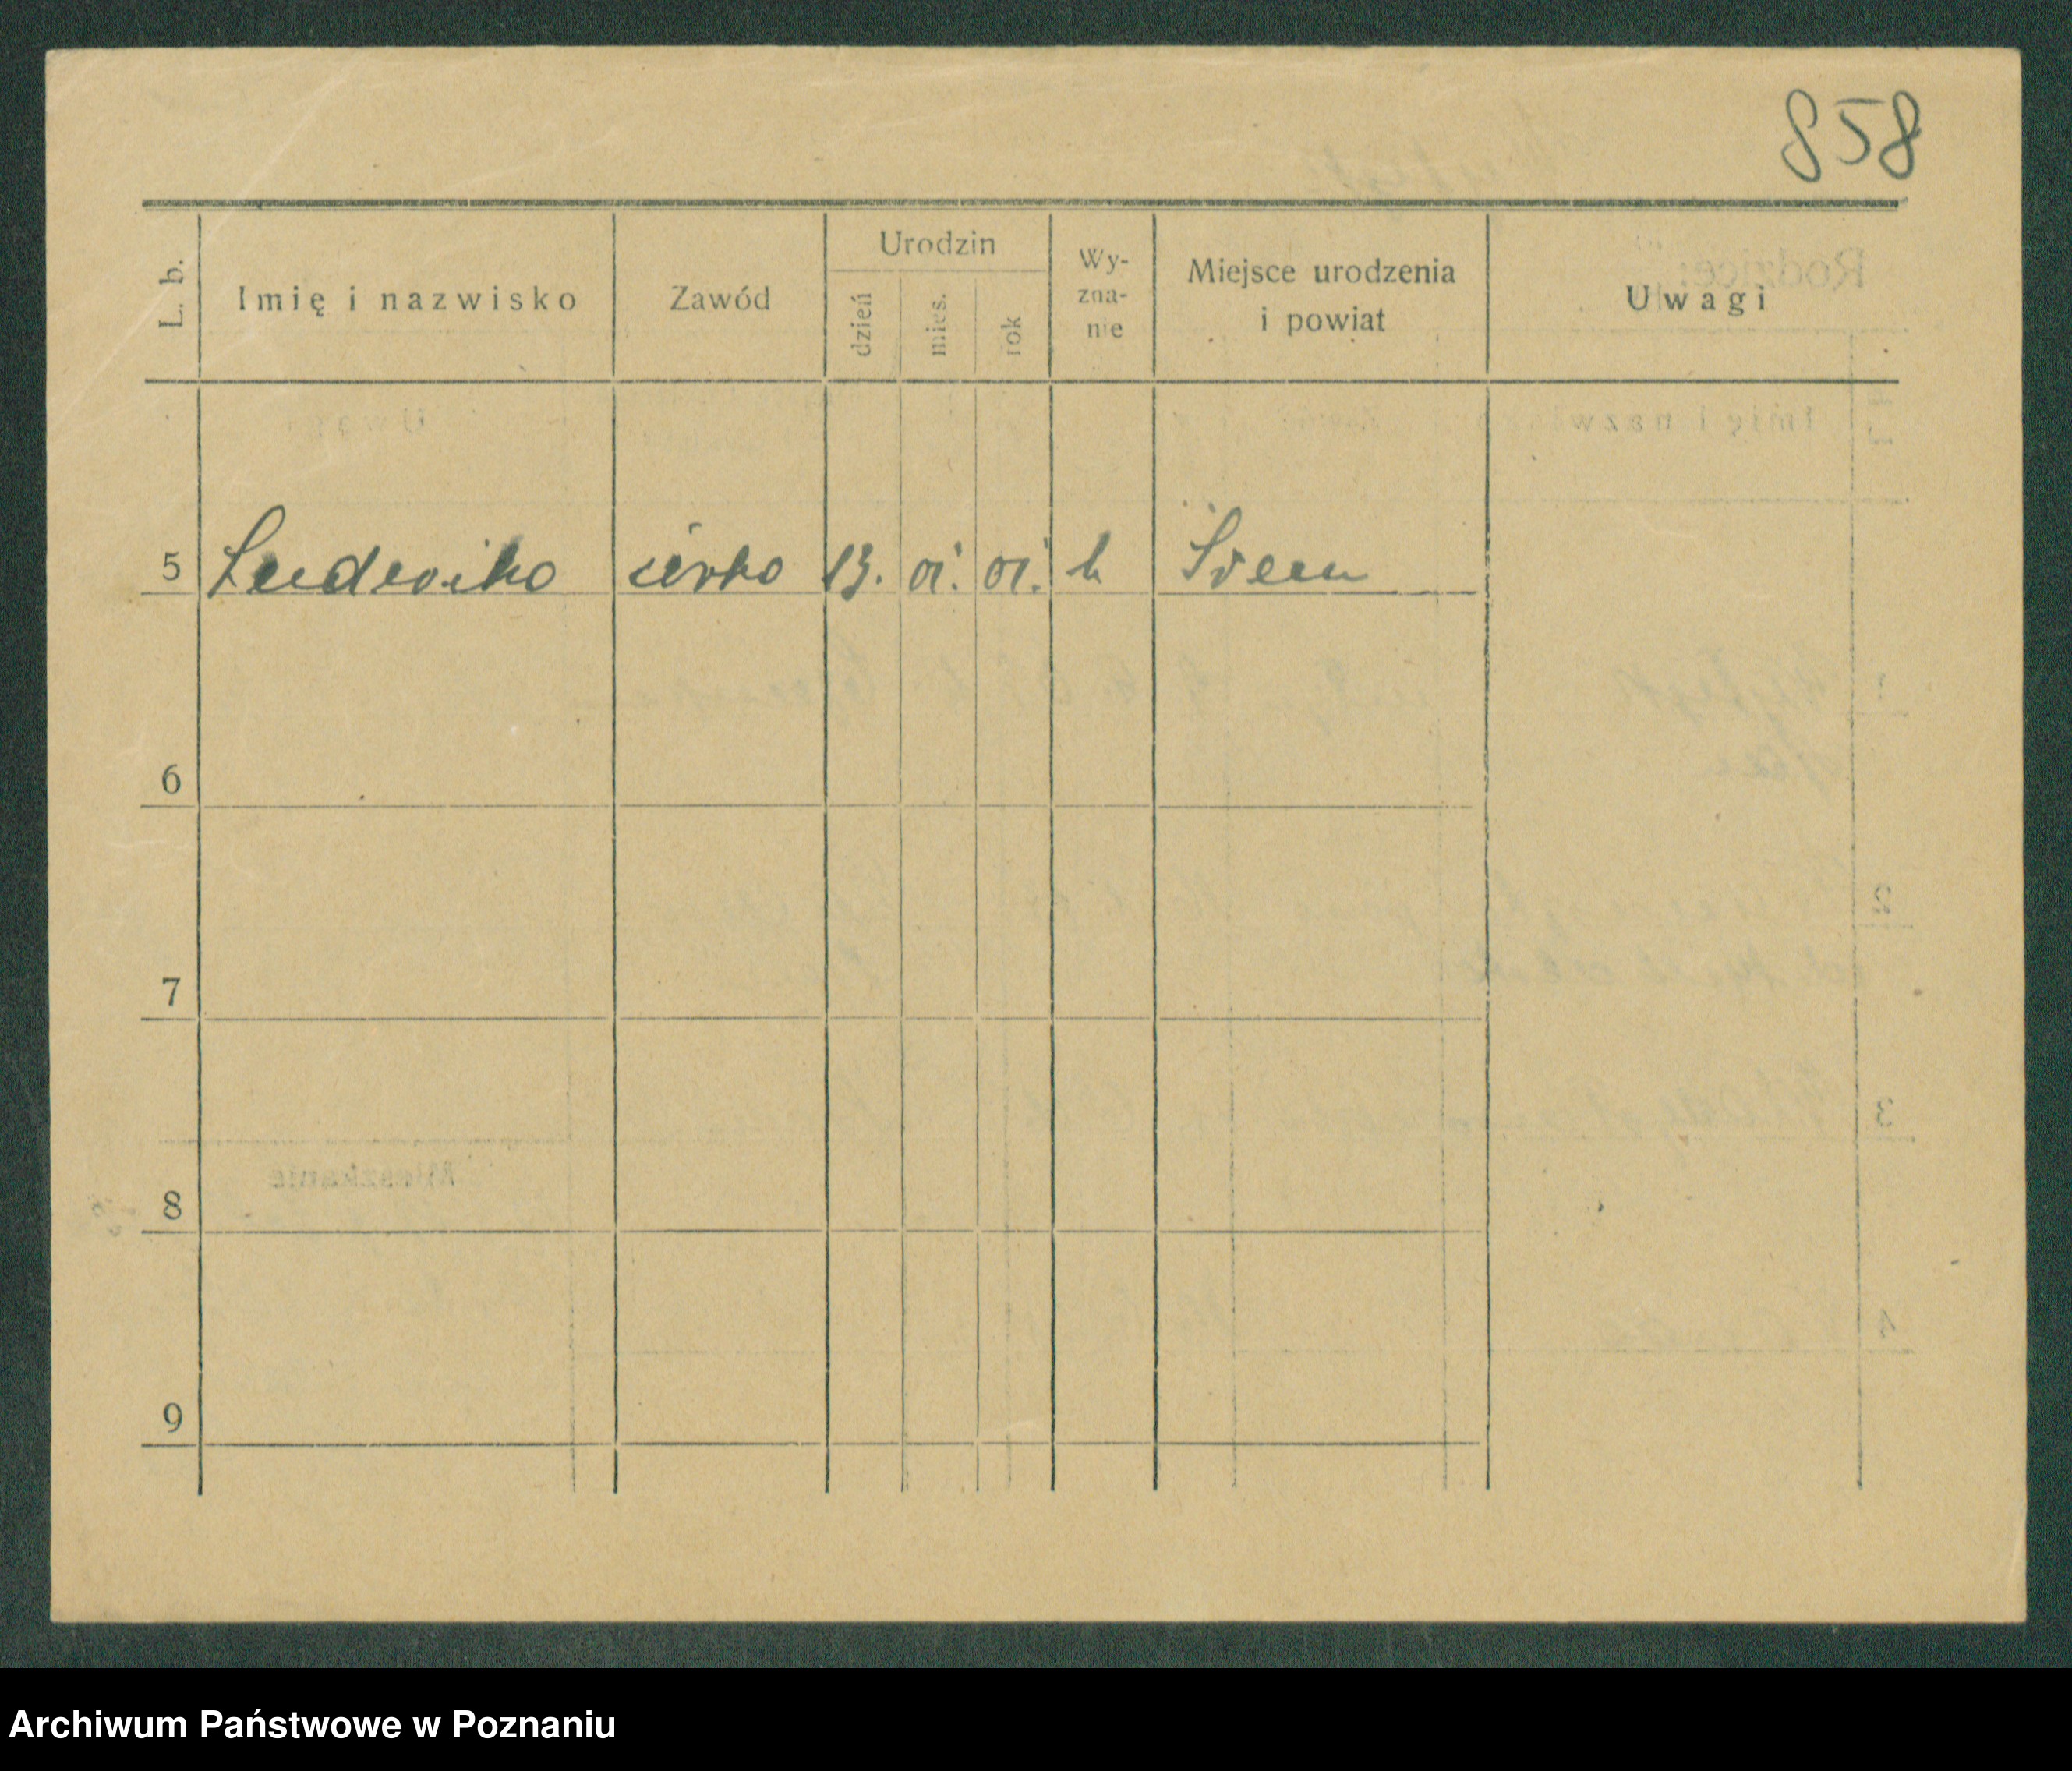 858
L. b.
Imię i nazwisko
Zawód
Urodzin
dzień
mies.
rok
Wy-
zna-
nie
Miejsce urodzenia
i powiat
Uwagi
5 Ludwika córka 13. 01. 01. k Śrem
6
7
8
9
Archiwum Państwowe w Poznaniu